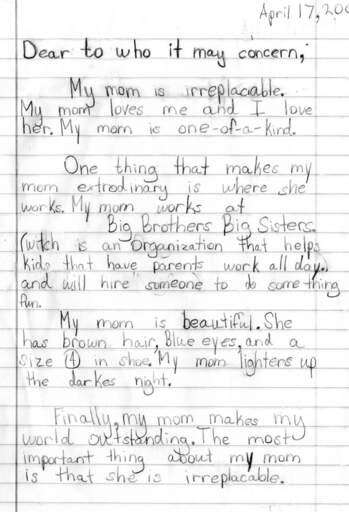 April 17, 200
Dear to who it may concern,
My mom is irreplacable.
My mom loves me and I love
her. My mom is one-of-a-kind.
One thing that makes my
mom extrodinary is where she
works. My mom works at
Big Brothers Big Sisters.
(witch is an Organization that helps
kids that have parents work all day.
and will hire someone to do some thing
fun.
My mom is beautiful. She
has brown hair, Blue eyes, and a
size 4 in shoe. My mom lighters up
the darkes night.
Finally, my mom makes my
world outstanding. The most
important thing about my mom
is that she is irreplacable.